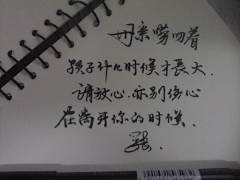 母亲唠叨着
孩子什么时候才長大.
请放心.亦别伤心
在离开你的时候.